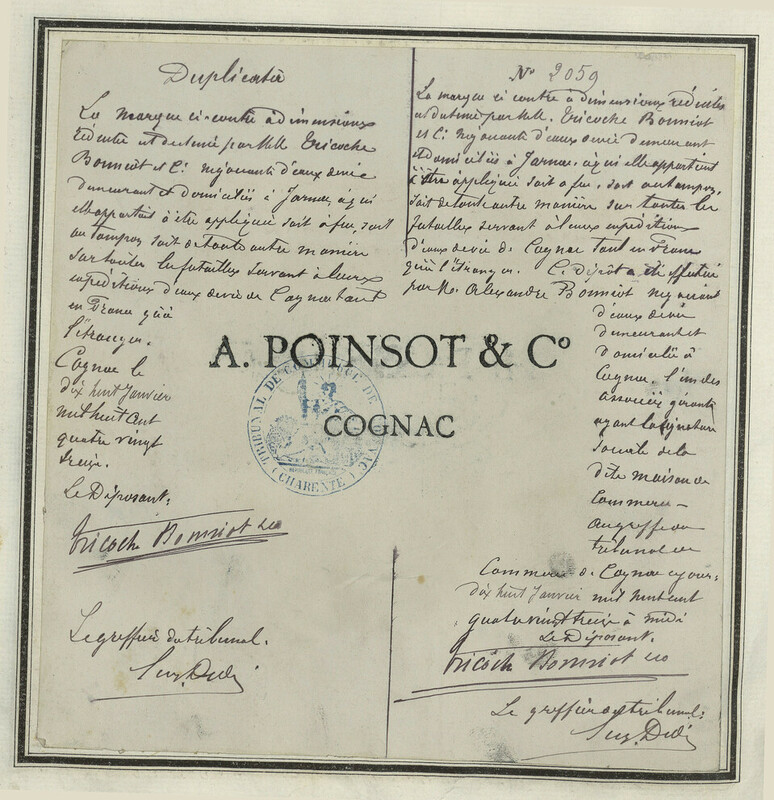 Duplicata
La marque ci-contre à dimensions
réduite est destiné par MM. Tricoche
Bonniot et Cie négociants d'eaux de vie
demeurant et domiciliés à Jarnac, à qui
elle appartient à être appliquée soit à feu, soit
au tampon soit de toute autre manière
sur toutes les futailles servant à leurs
expéditions d'eaux de vie de Cognac tant
en France qu'à
l'étranger.
Cognac le
dix huit Janvier
mil huit cent
quatre vingt
treize.
Le Déposant:
Tricoche Bonniot & Co
Le greffier du tribunal.
Nº 2059
La marque ci contre à dimensions réduites
est destiné par MM. Tricoche Bonniot
et Cie négociants d'eaux de vie demeurant
et domiciliés à Jarnac, à qui elle appartient
à être appliquée soit à feu, soit au tampon,
soit de toute autre manière sur toutes les
futailles servant à leurs expéditions
d'eaux de vie de Cognac tant en France
qu'à l'étranger. Le Dépôt a été effectué
par M. Alexandre Bonniot négociant
d'eaux de vie
demeurant et
domicilié à
Cognac, l'un des
associés gérants
ayant la signature
sociale de la
dite maison de
Commerce
au greffe du
tribunal de
Commerce de Cognac ce jour
dix huit Janvier mil huit cent
quatre vingt treize à midi
Le Déposant.
Tricoche Bonniot & Co
Le greffier du tribunal:
A. POINSOT & Cº
COGNAC
TRIBUNAL DE COMMERCE DE COGNAC
(CHARENTE)